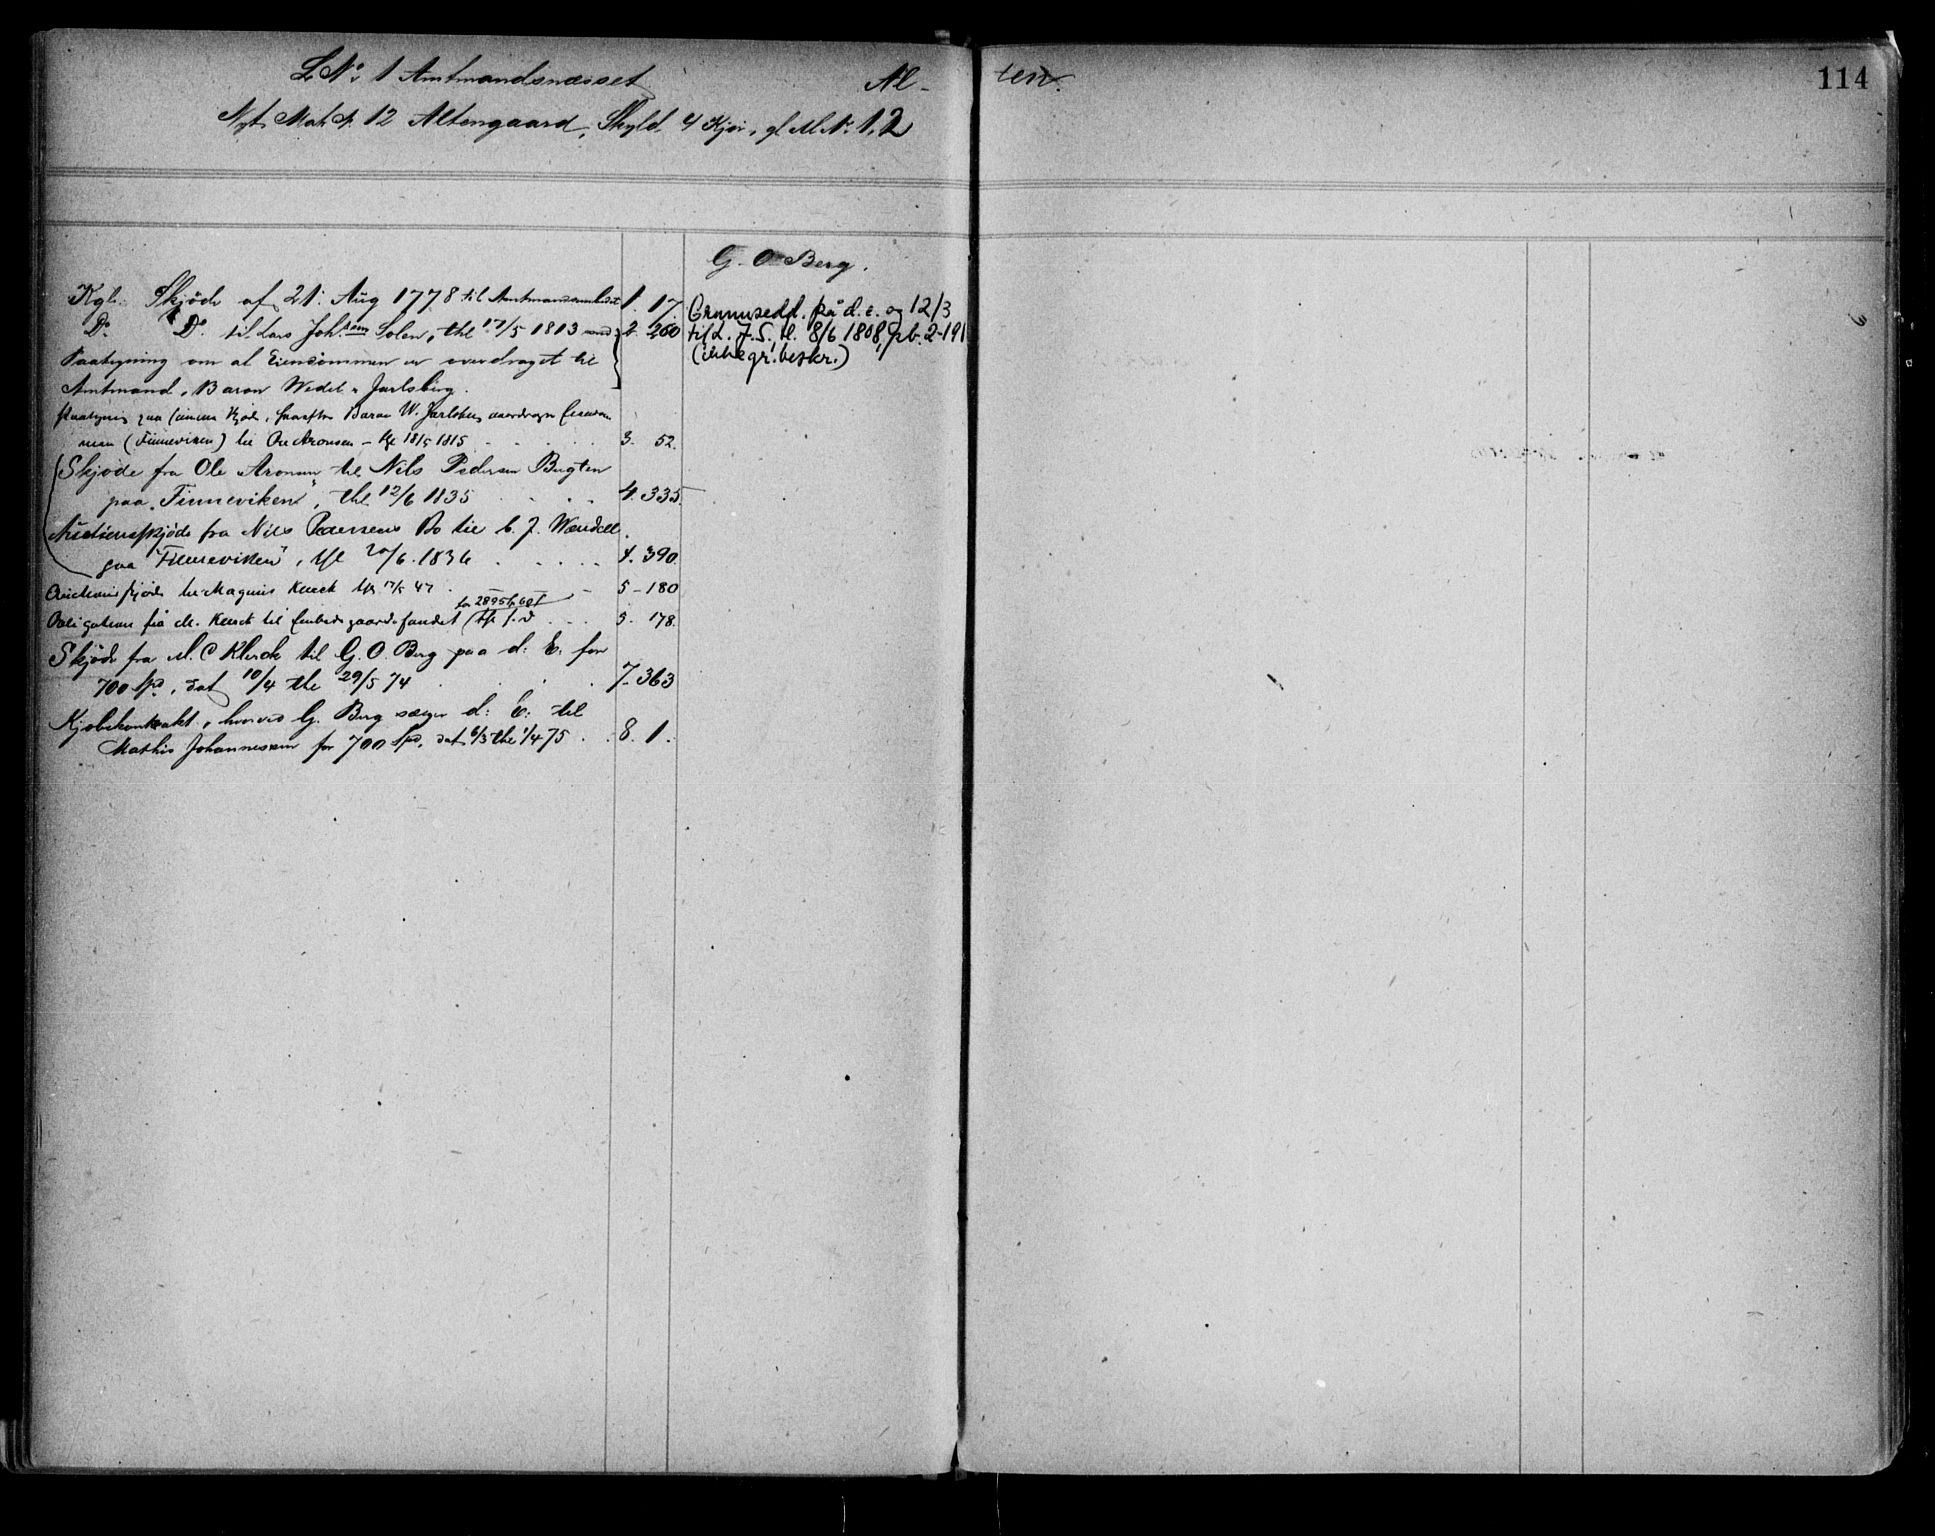 L. No. 1 Amtmandsnæsset Al- ten. 114
Nyt. Mat. N. 12 Altengaard, Skyld. 4 Kjör., gl M. No. 1,2
G. O. Berg.
Kgl. Skjöde af 21. Aug 1778 til 1. 17.
Do. Do. til Lars Joh.sen Solem, thl 17/5 1813 med 2. 260
Paategning om at Eiendommen er overdraget til
Amtmand, Baron Wedel Jarlsberg.
Paategning paa samme Skjøde, hvorefter Baron W. Jarlsberg overdrager Eiendom-
men (Finneviken) til Ole Aronsen - thl 18/5 1815 . . . . 3. 52.
Skjøde fra Ole Aronsen til Nils Pedersen Bugten
paa "Finneviken", thl 12/6 1835 . . . . 4. 335.
Auctionsskjøde fra Nils Pedersens Bo til C. J. Wændell
paa "Finneviken", thl 20/6. 1836 . . . . . 4. 390.
Auctionsskjøde til Magnus Klerck thl 17/5 47 . - 5 - 180
for 2895
Obligation fra M. Klerck til Embedsgaardsfondet thl s. d . . . 5. 178.
Skjøde fra M. C Klerck til G. O. Berg paa d: E: for
700 Spd, dat 10/4 thl 29/5 74 . . . . 7. 363
Kjøbekontrakt, hvorved G. Berg sælger d: E: til
Mathis Johannessen for 700 Spd, dat 6/3 thl 1/4 75 . . 8. 1.
Grunnsedd. på d.e. og 12/3
tild. J. S. tl. 8/6 1808, pb. 2-191
(ikke gr. beskr.)